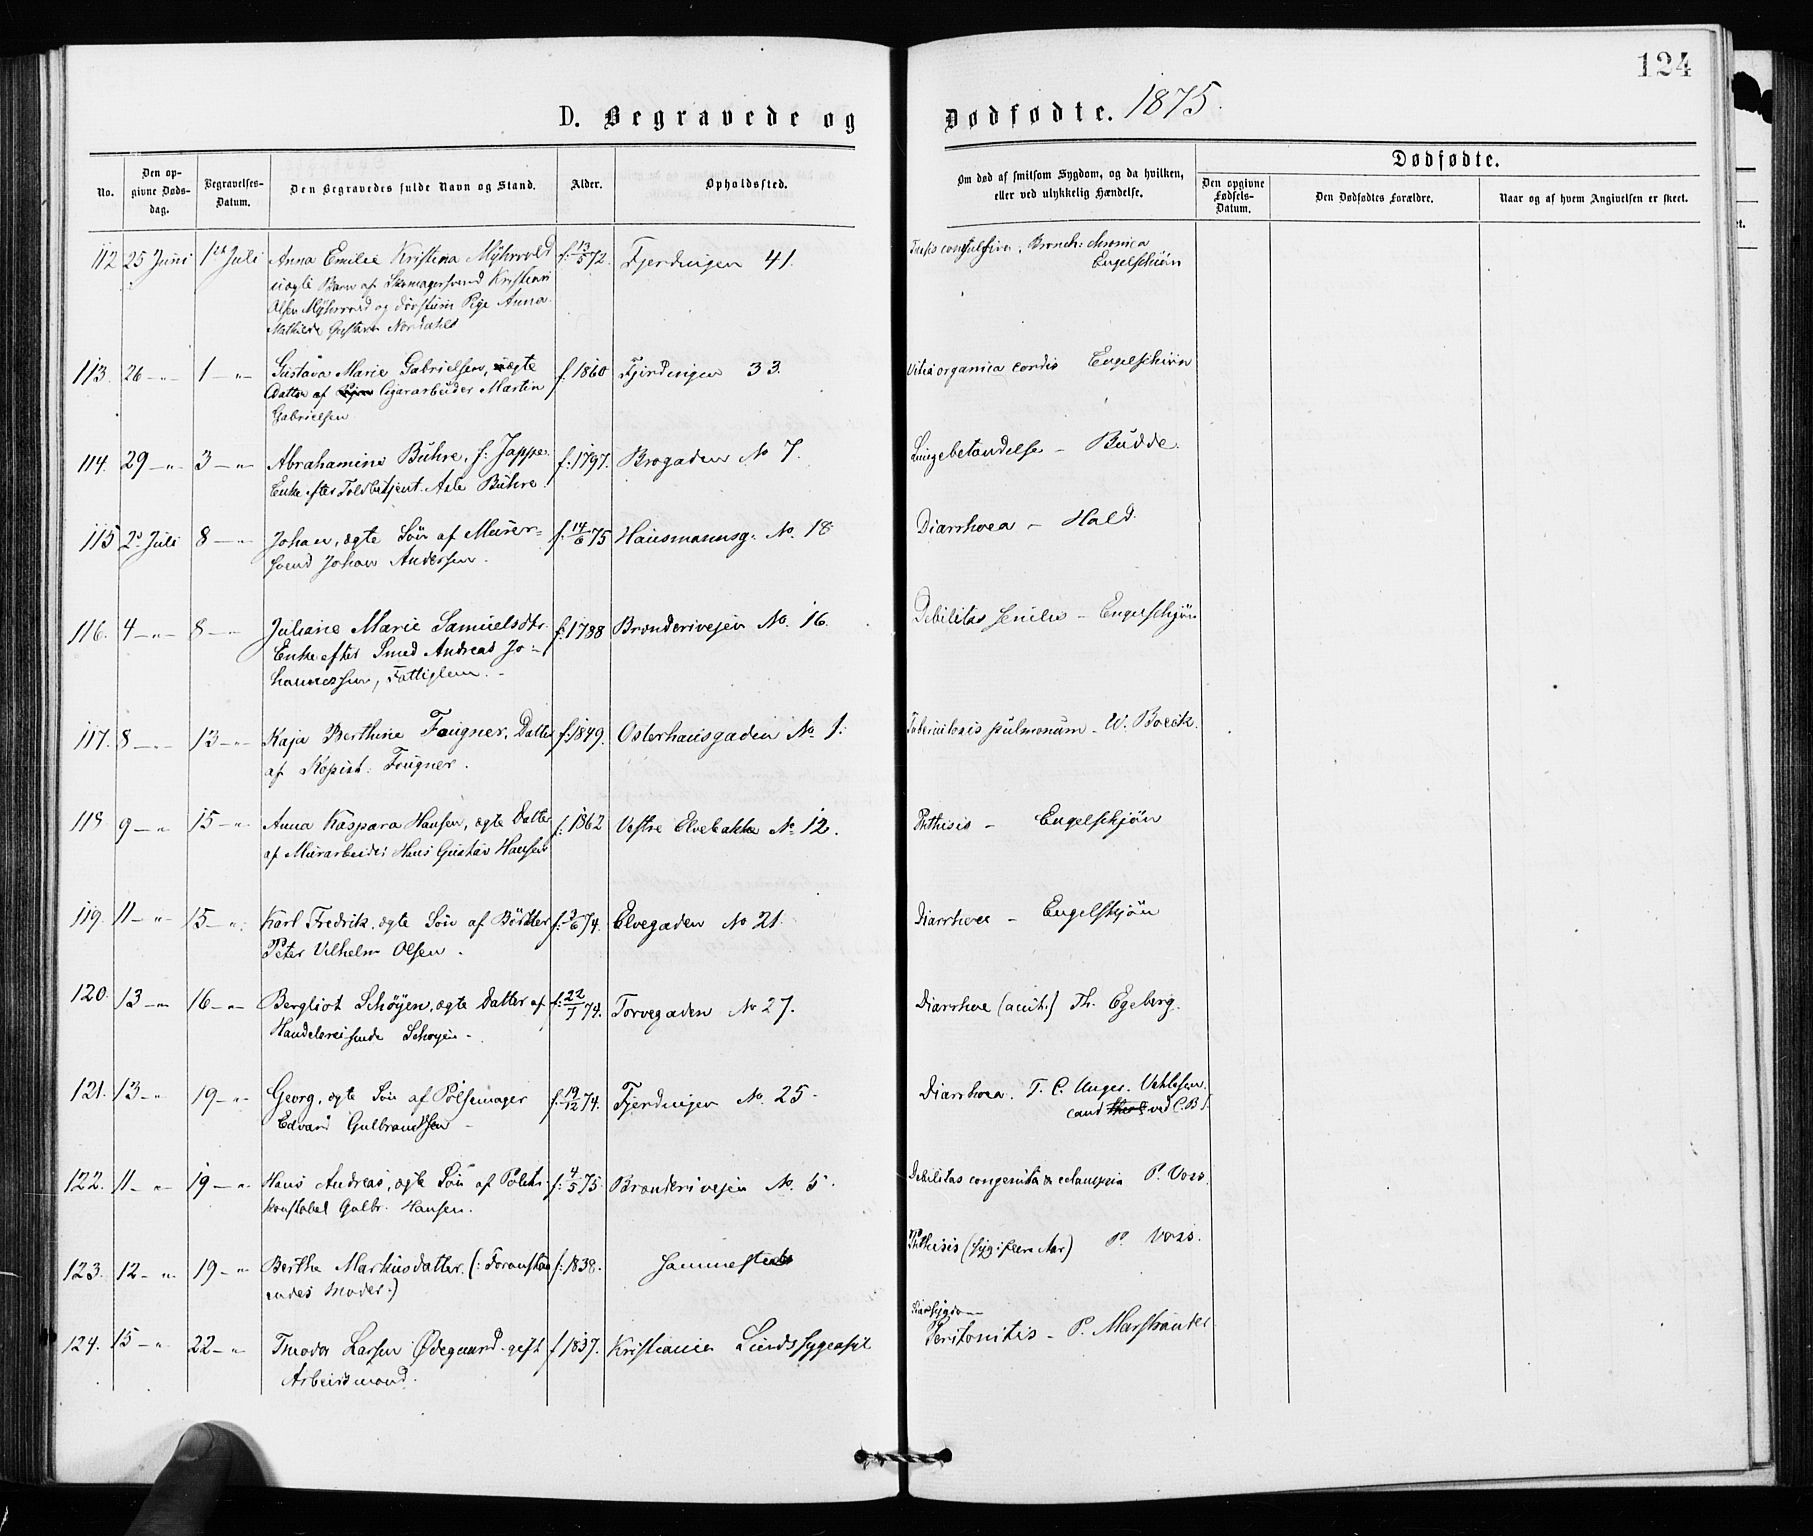 124
D. Begravede og Dødfødte. 1875.
No. Den opgivne Dødsdag. Begravelses-Datum. Den Begravedes fulde Navn og Stand. Alder. Opholdssted. Om død af smitsom Sygdom, og da hvilken, eller ved ulykkelig Hændelse. Dødfødte.
Den opgivne Fødsels-Datum. Den Dødfødtes Forældre. Naar og af hvem Angivelsen er skeet.
112 25 Juni 1ste Juli Anna Emilie Kristina Myhrvold f. 13/5 72. Fjerdingen 41. Tussis convulsiva. Bronch: chronica
uægte Barn af Skomagersvend Kristian Engelschiøn
Olsen Myhrvold og Pige Anna
Mathilde Gustava Nordahl
113. 26 -"- 1 -"- Gustava Marie Gabrielsen, ægte f. 1860 Fjerdingen 33. Vitia organica cordis Engelschiøn
Datter af Cigararbeider Martin
Gabrielsen
114. 29 -"- 3 -"- Abrahamine Buhre, f. Jappe. f. 1797. Brogaden No 7. Lungebetændelse - Budde.
Enke efter Toldbetjent Asle Buhre.
115 2 Juli 8 -"- Johan, ægte Søn af Murer- f. 14/6 75 Hausmannsg. No. 18 Diarrhoea - Hald.
svend Johan Andersen.
116. 4 -"- 8 -"- Juliane Marie Samuelsdtr. f. 1788 Brænderivejen No. 16. Debilitas senilis - Engelschjøn
Enke efter Smed Andreas Jo-
hannessen, Fattiglem. -
117. 8 -"- 13 -"- Kaja Berthine Fougner, Datter f. 1849. Osterhausgaden No 1. Tuberculosis pulmonum - W. Boeck.
af Kopist Fougner.
118. 9 -"- 15 -"- Anna Kaspara Hansen, ægte Datter f. 1862 Vestre Elvebakke No 12. Phthisis - Engelschjøn
af Murarbeider Hans Gustav Hansen
119. 11 -"- 15 -"- Karl Fredrik, ægte Søn af Bødker f. 3/6 74. Elvegaden No 21. Diarrhoea - Engelschjøn
Peter Vilhelm Olsen.
120. 13 -"- 16 -"- Bergliot Schøyen, ægte Datter af f. 22/7 74. Torvegaden No 27. Diarrhoe (acut.) Th. Egeberg.
Handelsreisende Schøyen -
121. 13 -"- 19 -"- Georg, ægte Søn af Pølsemager f. 19/12 74. Fjerdingen No. 25. Diarrhoea. T. C. Unger Vetlesen.
Edvard Gulbrandsen - cand ved C.B.S.
122. 11 -"- 19 -"- Hans Andreas, ægte Søn af Politi- f. 4/5 75. Brænderivejen No. 5. Debilitas congenita & eclampsia P. Voss.
konstabel Gulbr. Hansen.
123. 12 -"- 19 -"- Berthe Markusdatter. (: Foranstaa f. 1838. Sammesteds Phthisis (syg i flere Aar) P. Voss.
endes Moder.)
124. 15 -"- 22 -"- Theodor Larsen Ødegaard - gift f 1837. Kristiania Peritonitis - P. Marstrander
Arbeidsmand.